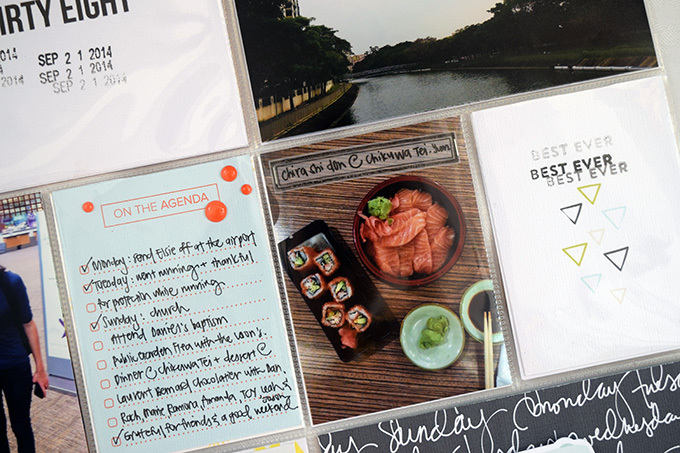 IRTY EIGHT
SEP 21 2014
SEP 21 2014
SEP 21 2014
ON THE AGENDA
Monday: send Elsie off at the airport
Tuesday: went running + thankful
for protection while running
Sunday: church
Attend Daniel's baptism
Public Garden Flea with the Woon's
Dinner @ Chikuwa Tei + dessert @
Laurent Bernard chocolatier with Dan
Rach, Marie, Amanda, TCY, Leah &
Grateful for friends & a good weekend
Chirashi don @ Chikuwa Tei. Yum
BEST EVER
BEST EVER
BEST EVER
Sunday Monday Tues
Wednesday